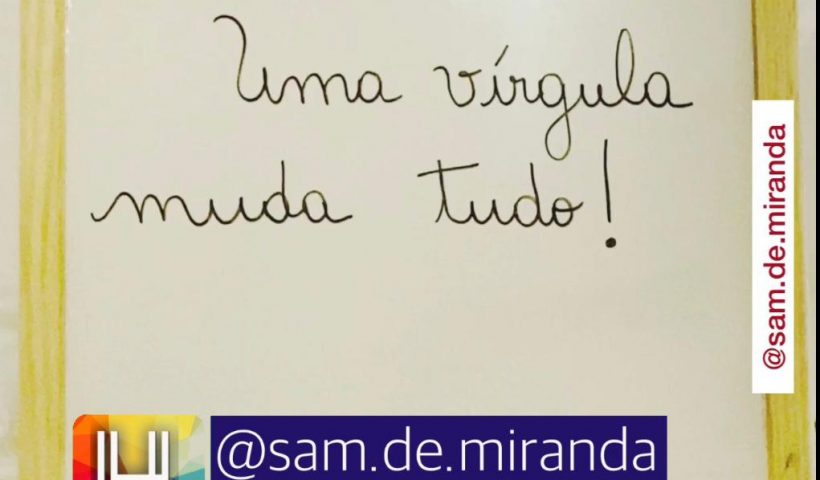 Uma vírgula
muda tudo!
@sam.de.miranda
@sam.de.miranda